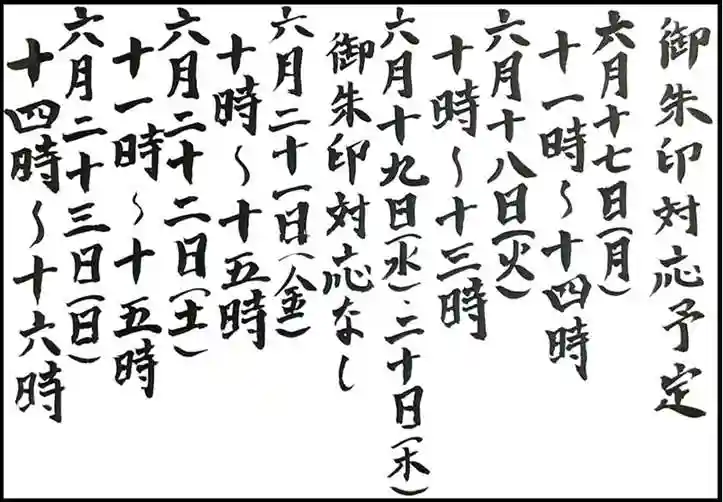 御朱印対応予定
六月十七日(月)
十一時〜十四時
六月十八日(火)
十時〜十三時
六月十九日(水)・二十日(木)
御朱印対応なし
六月二十一日(金)
十時〜十五時
六月二十二日(土)
十一時〜十五時
六月二十三日(日)
十四時〜十六時